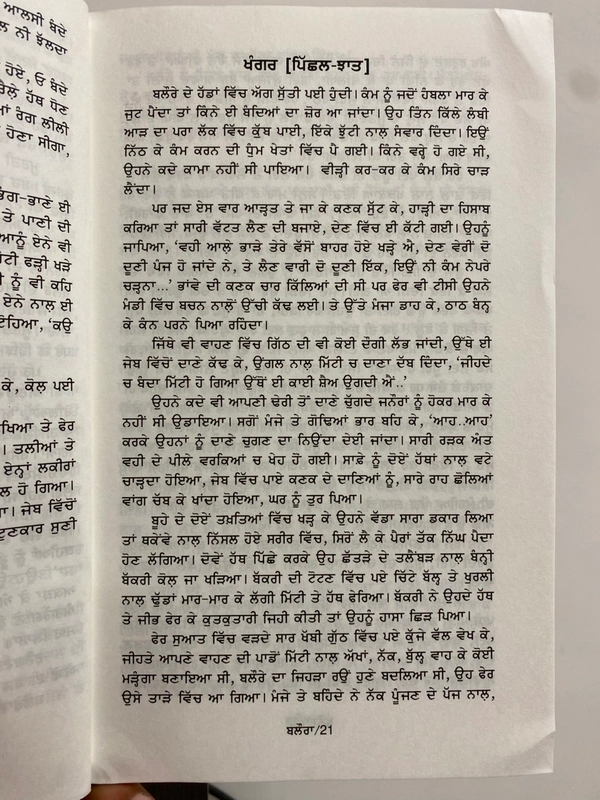 ਆਲਸੀ ਬੰਦੇ
ਨੀ ਝੱਲਦਾ
ਹੋਏ, ਓ ਬੰਦੇ
ਹੱਥ ਹੋਣ
ਰੰਗ ਲੀਲੀ
ਹੋਣਾ ਸੀਗਾ,
ਭੰਗ-ਭਾਣੇ ਈ
ਤੇ ਪਾਣੀ ਦੀ
ਆਨੂੰ ਏਨੇ ਵੀ
ਫੜ੍ਹੀ ਖੜੇ
ਨੂੰ ਵੀ ਕਹਿ
ਏਨੇ ਨਾਲ਼ ਈ
'ਕਉ
ਕੇ, ਕੋਲ਼ ਪਈ
ਤੇ ਫੇਰ
। ਤਲੀਆਂ ਤੇ
ਏਨ੍ਹਾਂ ਲਕੀਰਾਂ
ਹੋ ਗਿਆ।
ਜੇਬ ਵਿੱਚੋਂ
ਟੁਣਕਾਰ ਸੁਣੀ
ਖੰਗਰ [ਪਿੱਛਲ-ਝਾਤ]
ਬਲੌਰੇ ਦੇ ਹੱਡਾਂ ਵਿੱਚ ਅੱਗ ਸੁੱਤੀ ਪਈ ਹੁੰਦੀ। ਕੰਮ ਨੂੰ ਜਦੋਂ ਹੰਬਲਾ ਮਾਰ ਕੇ
ਜੁਟ ਪੈਂਦਾ ਤਾਂ ਕਿੰਨੇ ਈ ਬੰਦਿਆਂ ਦਾ ਜ਼ੋਰ ਆ ਜਾਂਦਾ। ਉਹ ਤਿੰਨ ਕਿੱਲੇ ਲੰਬੀ
ਆੜ ਦਾ ਪਰਾ ਲੱਕ ਵਿੱਚ ਕੁੱਬ ਪਾਈ, ਇੱਕੋ ਝੁੱਟੀ ਨਾਲ਼ ਸੰਵਾਰ ਦਿੰਦਾ। ਇਉਂ
ਨਿੱਠ ਕੇ ਕੰਮ ਕਰਨ ਦੀ ਧੁੰਮ ਖੇਤਾਂ ਵਿੱਚ ਪੈ ਗਈ। ਕਿੰਨੇ ਵਰ੍ਹੇ ਹੋ ਗਏ ਸੀ,
ਉਹਨੇ ਕਦੇ ਕਾਮਾ ਨਹੀਂ ਸੀ ਪਾਇਆ। ਵੀੜ੍ਹੀ ਕਰ-ਕਰ ਕੇ ਕੰਮ ਸਿਰੇ ਚਾੜ
ਲੈਂਦਾ।
ਪਰ ਜਦ ਏਸ ਵਾਰ ਆੜ੍ਹਤ ਤੇ ਜਾ ਕੇ ਕਣਕ ਸੁੱਟ ਕੇ, ਹਾੜ੍ਹੀ ਦਾ ਹਿਸਾਬ
ਕਰਿਆ ਤਾਂ ਸਾਰੀ ਵੱਟਤ ਲੈਣ ਦੀ ਬਜਾਏ, ਦੇਣ ਵਿੱਚ ਈ ਕੱਟੀ ਗਈ। ਉਹਨੂੰ
ਜਾਪਿਆ, 'ਵਹੀ ਆਲ਼ੇ ਭਾੜੇ ਤੇਰੇ ਵੱਸੋਂ ਬਾਹਰ ਹੋਏ ਖੜ੍ਹੇ ਐ, ਦੇਣ ਵੇਰੀਂ ਦੋ
ਦੂਣੀ ਪੰਜ ਹੋ ਜਾਂਦੇ ਨੇ, ਤੇ ਲੈਣ ਵਾਰੀ ਦੋ ਦੂਣੀ ਇੱਕ, ਇਉਂ ਨੀ ਕੰਮ ਨੇਪਰੇ
ਚੜ੍ਹਨਾ...' ਭਾਂਵੇ ਦੀ ਕਣਕ ਚਾਰ ਕਿੱਲਿਆਂ ਦੀ ਸੀ ਪਰ ਫੇਰ ਵੀ ਟੀਸੀ ਉਹਨੇ
ਮੰਡੀ ਵਿੱਚ ਬਚਨ ਨਾਲੋਂ ਉੱਚੀ ਕੱਢ ਲਈ। ਤੇ ਉੱਤੇ ਮੰਜਾ ਡਾਹ ਕੇ, ਠਾਠ ਬੰਨ੍ਹ
ਕੇ ਕੰਨ ਪਰਨੇ ਪਿਆ ਰਹਿੰਦਾ।
ਜਿੱਥੇ ਵੀ ਵਾਹਣ ਵਿੱਚ ਗਿੱਠ ਦੀ ਵੀ ਕੋਈ ਦੌਗੀ ਲੱਭ ਜਾਂਦੀ, ਉੱਥੇ ਈ
ਜੇਬ ਵਿੱਚੋਂ ਦਾਣੇ ਕੱਢ ਕੇ, ਉਂਗਲ ਨਾਲ਼ ਮਿੱਟੀ ਚ ਦਾਣਾ ਦੱਬ ਦਿੰਦਾ, 'ਜੀਹਦੇ
ਚ ਬੰਦਾ ਮਿੱਟੀ ਹੋ ਗਿਆ ਉੱਥੋਂ ਈ ਕਾਈ ਸ਼ੈਅ ਉਗਦੀ ਐਂ..'
ਉਹਨੇ ਕਦੇ ਵੀ ਆਪਣੀ ਢੇਰੀ ਤੋਂ ਦਾਣੇ ਚੁੱਗਦੇ ਜਨੌਰਾਂ ਨੂੰ ਹੋਕਰ ਮਾਰ ਕੇ
ਨਹੀਂ ਸੀ ਉਡਾਇਆ। ਸਗੋਂ ਮੰਜੇ ਤੇ ਗੋਢਿਆਂ ਭਾਰ ਬਹਿ ਕੇ, 'ਆਹ..ਆਹ'
ਕਰਕੇ ਉਹਨਾਂ ਨੂੰ ਦਾਣੇ ਚੁਗਣ ਦਾ ਨਿਉਂਦਾ ਦੇਈ ਜਾਂਦਾ। ਸਾਰੀ ਰੜਕ ਅੰਤ
ਵਹੀ ਦੇ ਪੀਲੇ ਵਰਕਿਆਂ ਚ ਖੇਹ ਹੋ ਗਈ। ਸਾਫ਼ੇ ਨੂੰ ਦੋਏਂ ਹੱਥਾਂ ਨਾਲ਼ ਵਟੇ
ਚਾੜ੍ਹਦਾ ਹੋਇਆ, ਜੇਬ ਵਿੱਚ ਪਾਏ ਕਣਕ ਦੇ ਦਾਣਿਆਂ ਨੂੰ, ਸਾਰੇ ਰਾਹ ਛੋਲਿਆਂ
ਵਾਂਗ ਚੱਬ ਕੇ ਖਾਂਦਾ ਹੋਇਆ, ਘਰ ਨੂੰ ਤੁਰ ਪਿਆ।
ਬੂਹੇ ਦੇ ਦੋਏਂ ਤਖ਼ਤਿਆਂ ਵਿੱਚ ਖੜ੍ਹ ਕੇ ਉਹਨੇ ਵੱਡਾ ਸਾਰਾ ਡਕਾਰ ਲਿਆ
ਤਾਂ ਥਕੇਂਵੇ ਨਾਲ਼ ਨਿੱਸਲ ਹੋਏ ਸਰੀਰ ਵਿੱਚ, ਸਿਰੋਂ ਲੈ ਕੇ ਪੈਰਾਂ ਤੱਕ ਨਿੱਘ ਪੈਦਾ
ਹੋਣ ਲੱਗਿਆ। ਦੋਵੇਂ ਹੱਥ ਪਿੱਛੇ ਕਰਕੇ ਉਹ ਛੱਤੜੇ ਦੇ ਤਲੇਂਬੜ ਨਾਲ਼ ਬੰਨ੍ਹੀ
ਬੱਕਰੀ ਕੋਲ਼ ਜਾ ਖੜਿਆ। ਬੱਕਰੀ ਦੀ ਟੋਟਣ ਵਿੱਚ ਪਏ ਚਿੱਟੇ ਬੱਲ੍ਹ ਤੇ ਖੁਰਲੀ
ਨਾਲ਼ ਢੁੱਡਾਂ ਮਾਰ-ਮਾਰ ਕੇ ਲੱਗੀ ਮਿੱਟੀ ਤੇ ਹੱਥ ਫੇਰਿਆ। ਬੱਕਰੀ ਨੇ ਉਹਦੇ ਹੱਥ
ਤੇ ਜੀਭ ਫੇਰ ਕੇ ਕੁਤਕੁਤਾਰੀ ਜਿਹੀ ਕੀਤੀ ਤਾਂ ਉਹਨੂੰ ਹਾਸਾ ਛਿੜ ਪਿਆ।
ਫੇਰ ਸੁਆਤ ਵਿੱਚ ਵੜਦੇ ਸਾਰ ਖੱਬੀ ਗੁੱਠ ਵਿੱਚ ਪਏ ਕੁੱਜੇ ਵੱਲ ਵੇਖ ਕੇ,
ਜੀਹਤੇ ਆਪਣੇ ਵਾਹਣ ਦੀ ਪਾਡੋਂ ਮਿੱਟੀ ਨਾਲ਼ ਅੱਖਾਂ, ਨੱਕ, ਬੁੱਲ੍ਹ ਵਾਹ ਕੇ ਕੋਈ
ਮੜ੍ਹੰਗਾ ਬਣਾਇਆ ਸੀ, ਬਲੌਰੇ ਦਾ ਜਿਹੜਾ ਰਉਂ ਹੁਣੇ ਬਦਲਿਆ ਸੀ, ਉਹ ਫੇਰ
ਉਸੇ ਤਾੜੇ ਵਿੱਚ ਆ ਗਿਆ। ਮੰਜੇ ਤੇ ਬਹਿੰਦੇ ਨੇ ਨੱਕ ਪੂੰਜਣ ਦੇ ਪੱਜ ਨਾਲ਼,
ਬਲੌਰਾ/21